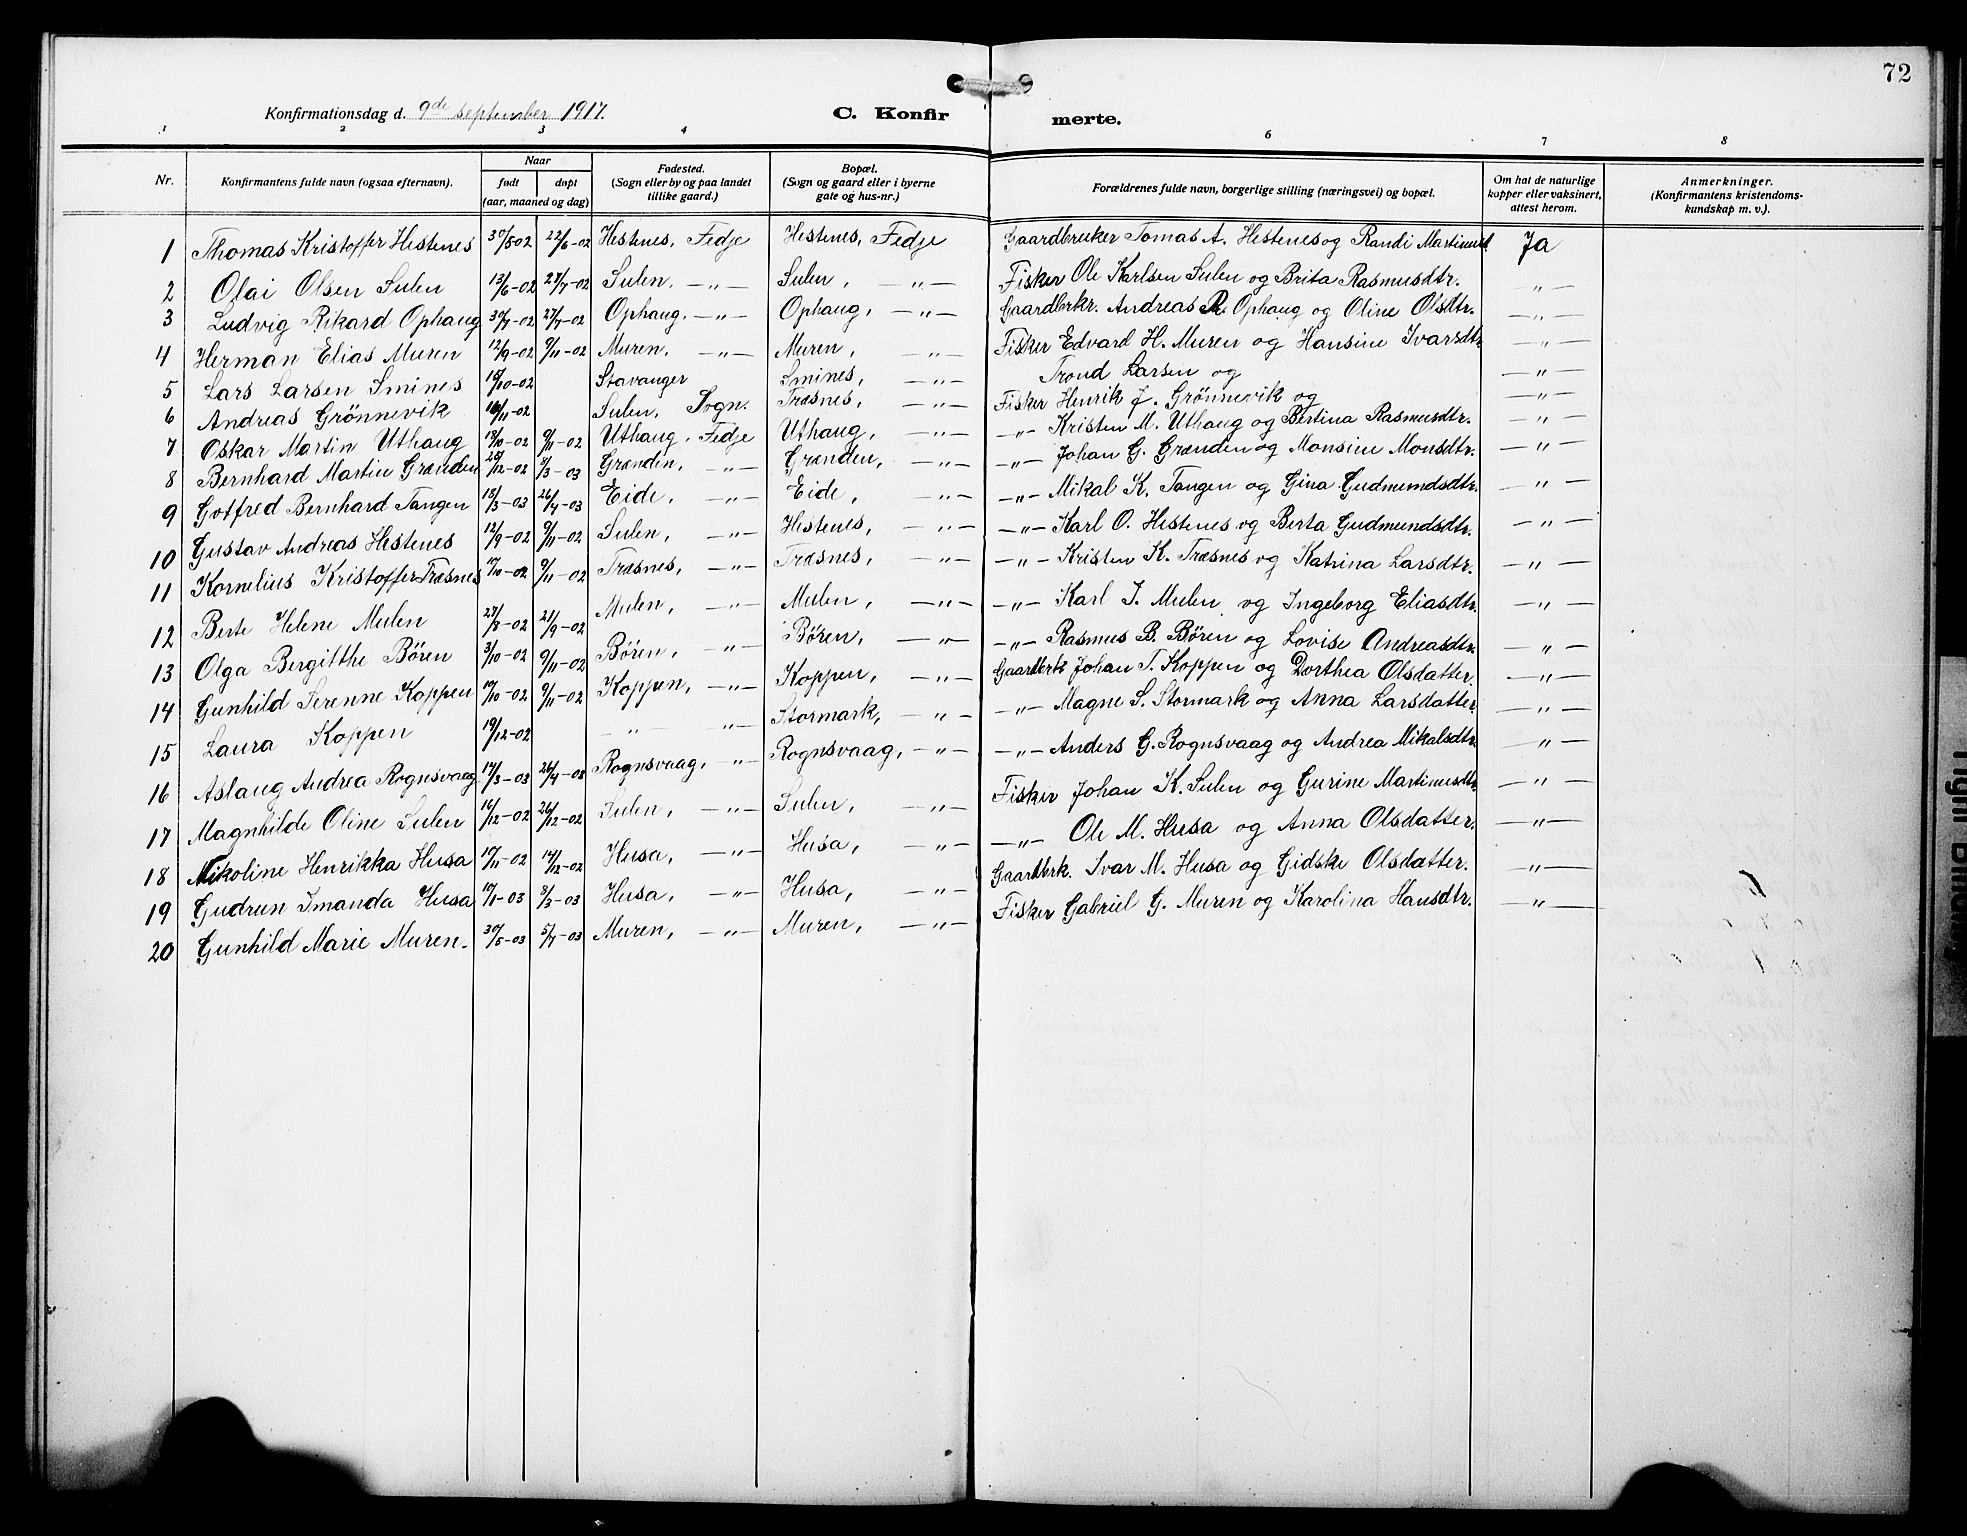 72
Konfirmationsdag d. 9de september 1917. C. Konfirmerte.
1 2 3 4 6 7 8
Nr. Konfirmantens fulde navn (ogsaa efternavn). Naar født døpt (aar, maaned og dag) Fødested. (Sogn eller by og paa landet tillike gaard.) Bopæl. (Sogn og gaard eller i byerne gate og hus-nr.) Forældrenes fulde navn, borgerlige stilling (næringsvei) og bopæl. Om hat de naturlige kopper eller vaksinert, attest herom. Anmerkninger. (Konfirmantens kristendomskundskap m. v.).
1 Thomas Kristoffer Hestenes 30/5 02 22/6-02 Hestenes, Fedje Hestenes, Fedje Gaardbruker Tomas A. Hestenes og Randi Martinusd. Ja
2 Olai Olsen Sulen 13/6-02 27/7-02 Sulen, -„- Sulen, -„- Fisker Ole Karlsen Sulen og Brita Rasmusdtr. -„-
3 Ludvig Rikard Ophaug 30/7-02 27/7-02 Ophaug, -„- Ophaug, -„- Gaardbrkr. Andreas R. Ophaug og Oline Olsdtr. -„-
4 Herman Elias Muren 12/9-02 9/11-02 Muren, -„- Muren, -„- Fisker Edvard H. Muren og Hansine Ivarsdtr. -„-
5 Lars Larsen Smines /10-02 Stavanger Smines, -„- Trond Larsen og -„-
6 Andreas Grönnevik /11-02 Sulen, Sogn. Træsnes, -„- Fisker Henrik J. Grönnevik og -„-
7 Oskar Martin Uthaug 18/10-02 9/11-02 Uthaug, Fedje Uthaug, -„- -„- Kristen M. Uthaug og Bertina Rasmusdtr. -„-
8 Bernhard Martin Grænden 28/12-02 8/3-03 Grænden, -„- Grænden, -„- -„- Johan G. Grænden og Monsine Monsdtr. -„-
9 Gotfred Bernhard Tangen 18/3-03 26/4-03 Eide, -„- Eide, -„- -„- Mikal K. Tangen og Gina Gudmundsdtr. -„-
10 Gustav Andreas Hestenes 12/9-02 9/11-02 Sulen, -„- Hestenes, -„- -„- Karl O. Hestenes og Berta Gudmundsdtr. -„-
11 Kornelius Kristoffer Træsnes 17/10-02 9/11-02 Træsnes, -„- Træsnes, -„- -„- Kristen K. Træsnes og Katrina Larsdtr. -„-
12 Berte Helene Mulen 27/8-02 21/9-02 Mulen, -„- Mulen, -„- -„- Karl J. Mulen og Ingeborg Eliasdtr. -„-
13 Olga Bergitthe Bören 3/10-02 9/11-02 Bören, -„- Bören, -„- -„- Rasmus B. Bören og Lovise Andreasdtr. -„-
14 Gunhild Serenne Koppen 17/10-02 9/11-02 Koppen, -„- Koppen, -„- Gaardbrk Johan T. Koppen og Dorthea Olsdatter. -„-
15 Laura Koppen 19/12-02 -„- -„- Stormark, -„- -„- Magne S. Stormark og Anna Larsdatter -„-
16 Aslaug Andrea Rognsvaag 17/3-03 26/4-03 Rognsvaag, -„- Rognsvaag, -„- -„- Anders G. Rognsvaag og Andrea Mikalsdtr. -„-
17 Magnhilde Oline Sulen 16/12-02 26/12-02 Sulen, -„- Sulen, -„- Fisker Johan K. Sulen og Gurine Martinusdtr. -„-
18 Nikoline Henrikka Husa 17/11-02 14/12-02 Husa, -„- Husa, -„- -„- Ole M. Husa og Anna Olsdatter. -„-
19 Gudrun Imanda Husa 17/1-03 8/3-03 Husa, -„- Husa, -„- Gaardbrk. Ivar M. Husa og Gidske Olsdatter. -„-
20 Gunhild Marie Muren. 30/5-03 5/7-03 Muren, -„- Muren, -„- Fisker Gabriel G. Muren og Karolina Hansdtr. -„-